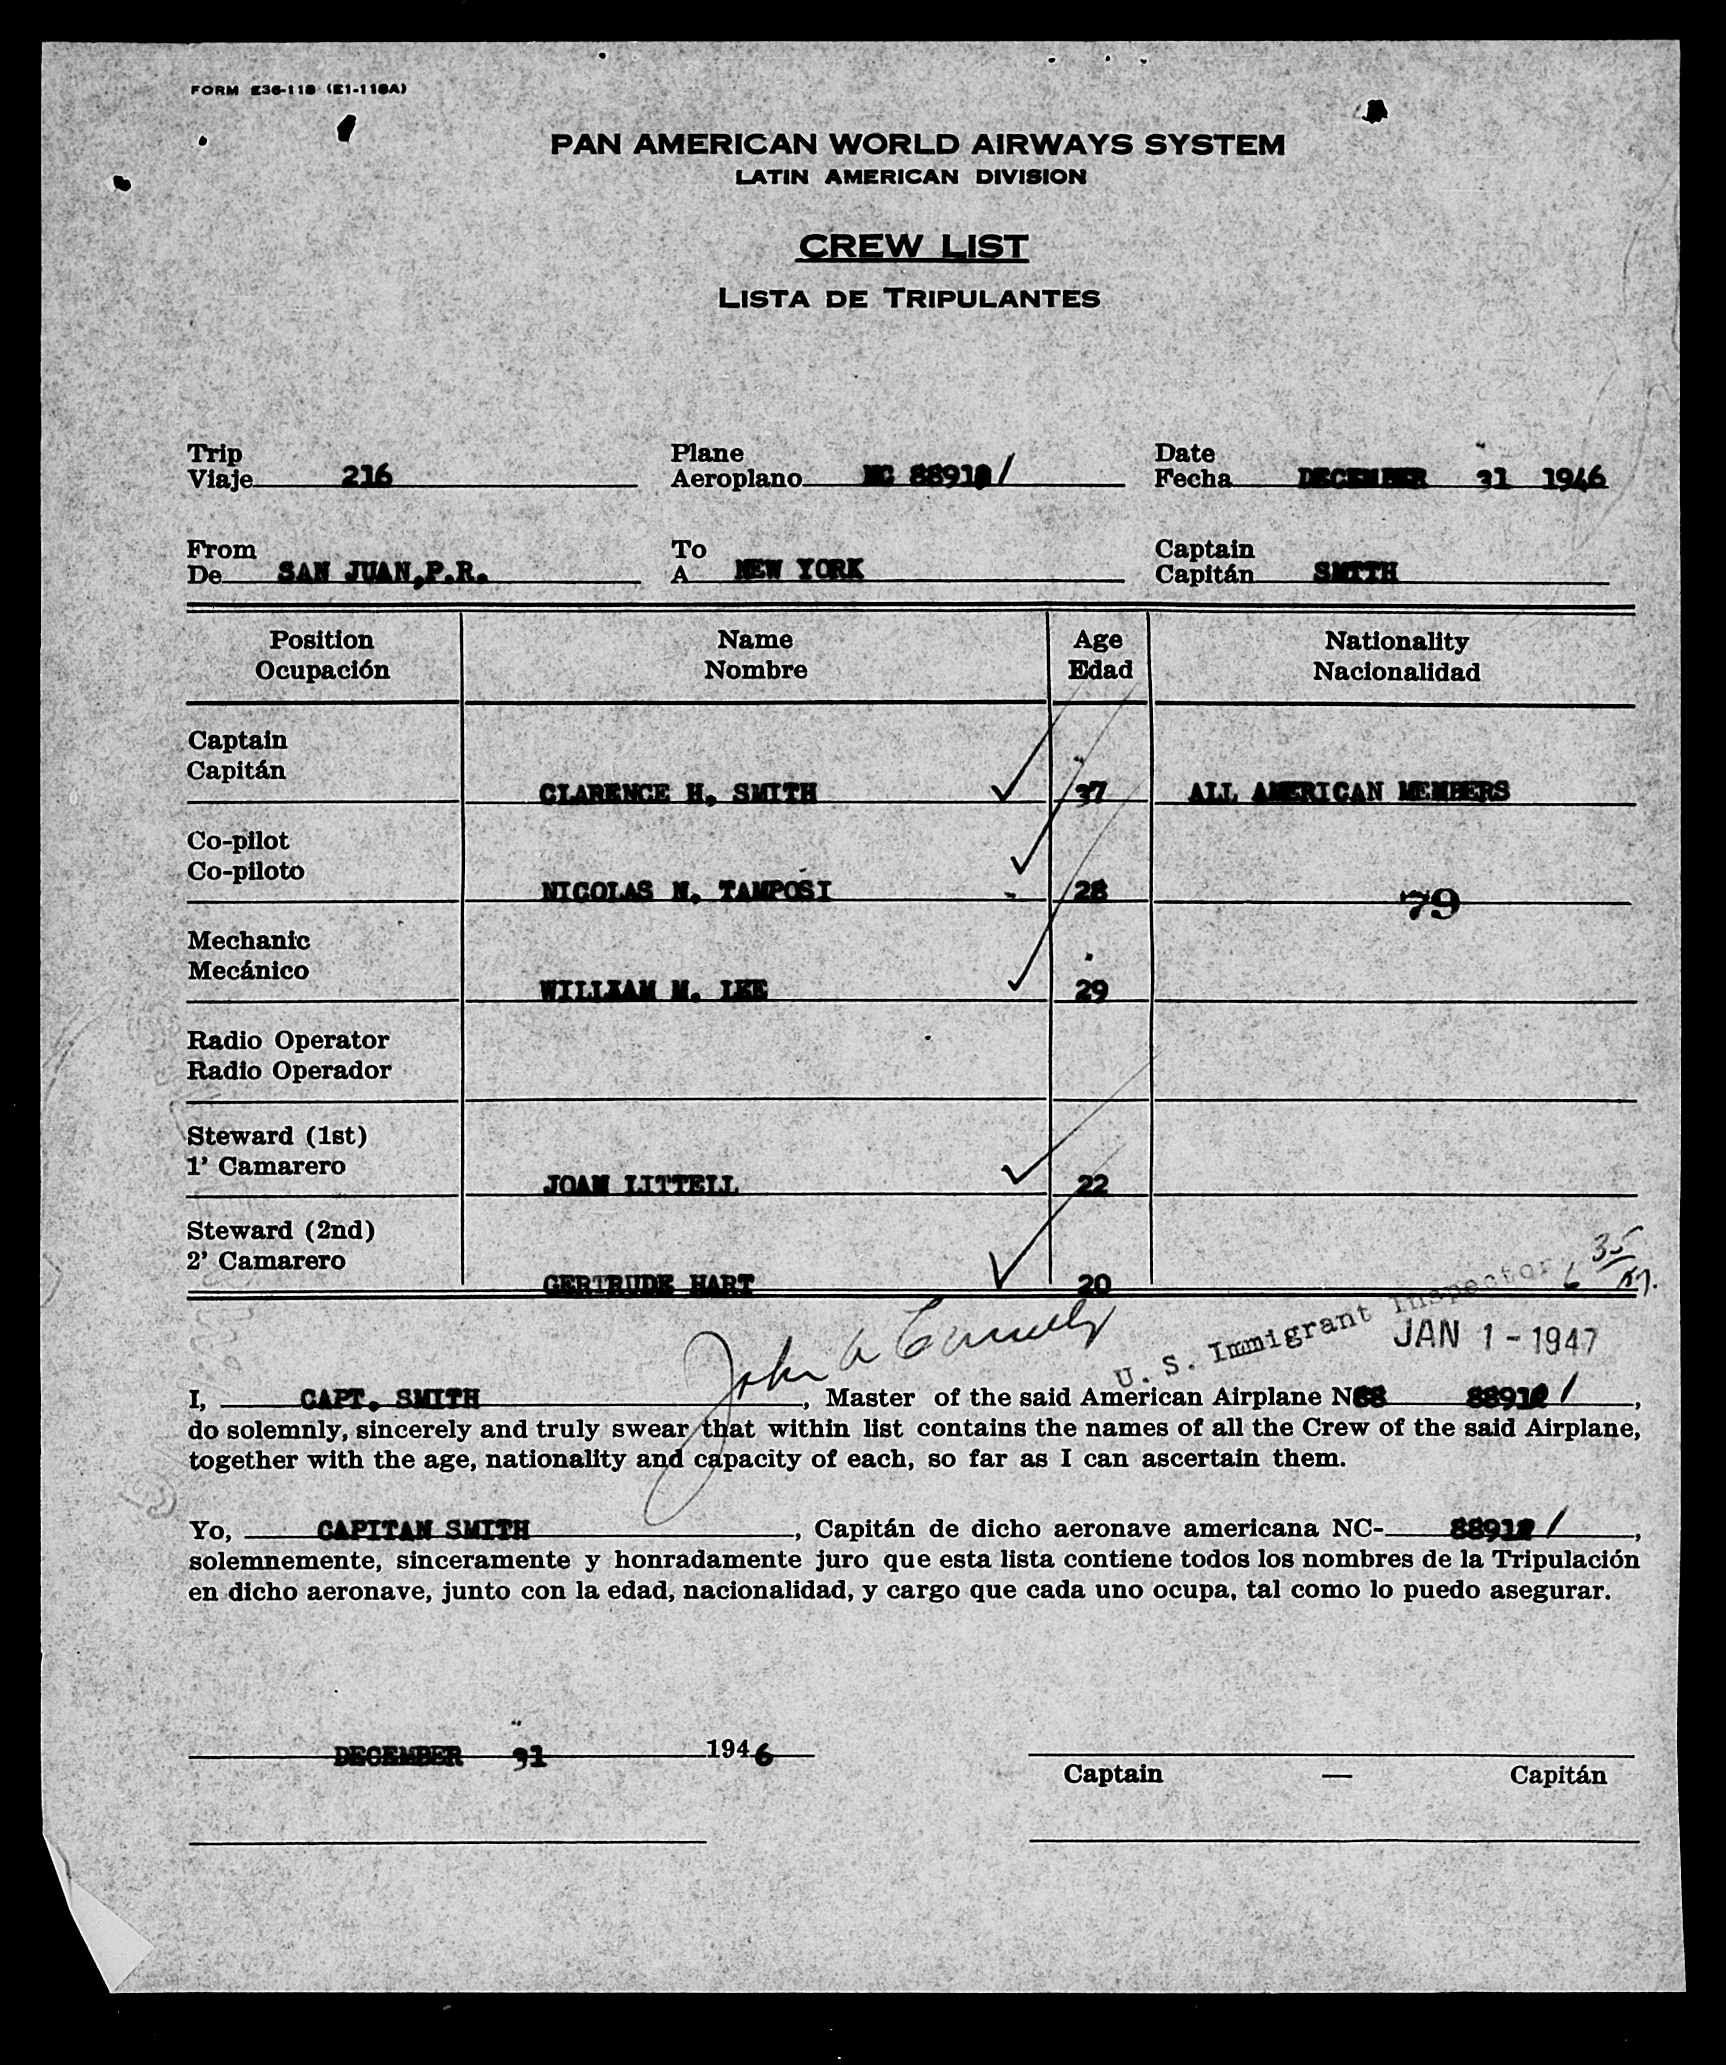 FORM E36-118 (E1-118A)
PAN AMERICAN WORLD AIRWAYS SYSTEM
LATIN AMERICAN DIVISION
CREW LIST
LISTA DE TRIPULANTES
Trip Plane Date
Viaje 216 Aeroplano NC 8891 1 Fecha DECEMBER 31 1946
From To Captain
De SAN JUAN,P.R. A NEW YORK Capitán SMITH
Position Name Age Nationality
Ocupación Nombre Edad Nacionalidad
Captain
Capitán CLARENCE H. SMITH 37 ALL AMERICAN MEMBERS
Co-pilot
Co-piloto NICOLAS N. TAMPOSI 28 79
Mechanic
Mecánico WILLIAM M. LEE 29
Radio Operator
Radio Operador
Steward (1st)
1' Camarero JOAN LITTELL 22
Steward (2nd)
2' Camarero GERTRUDE HART 20
35
6
John A
U. S. Immigrant Inspector
JAN 1 - 1947
I, CAPT. SMITH, Master of the said American Airplane N 8891 1,
do solemnly, sincerely and truly swear that within list contains the names of all the Crew of the said Airplane,
together with the age, nationality and capacity of each, so far as I can ascertain them.
Yo, CAPITAN SMITH, Capitán de dicho aeronave americana NC- 8891 1,
solemnemente, sinceramente y honradamente juro que esta lista contiene todos los nombres de la Tripulación
en dicho aeronave, junto con la edad, nacionalidad, y cargo que cada uno ocupa, tal como lo puedo asegurar.
DECEMBER 31 1946
Captain — Capitán